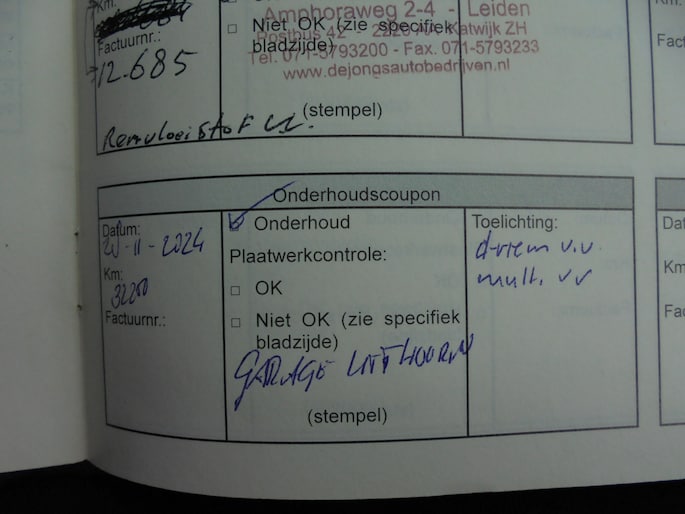 Km:
Factuurnr.:
12.685
□ Niet OK (zie specifiek
bladzijde)
Amphoraweg 2-4 - Leiden
Katwijk ZH
Tel. 071-5793200 - Fax. 071-5793233
www.dejongsautobedrijven.nl
(stempel)
Remvloeistof VV.
Fact
Onderhoudscoupon
Datum:
-11-2024
Km:
32250
Factuurnr.:
Onderhoud
Plaatwerkcontrole:
□ OK
□ Niet OK (zie specifiek
bladzijde)
GARAGE UITHOORN
(stempel)
Toelichting:
d-riem v.v.
mult. vv
Dat
Km
Fac